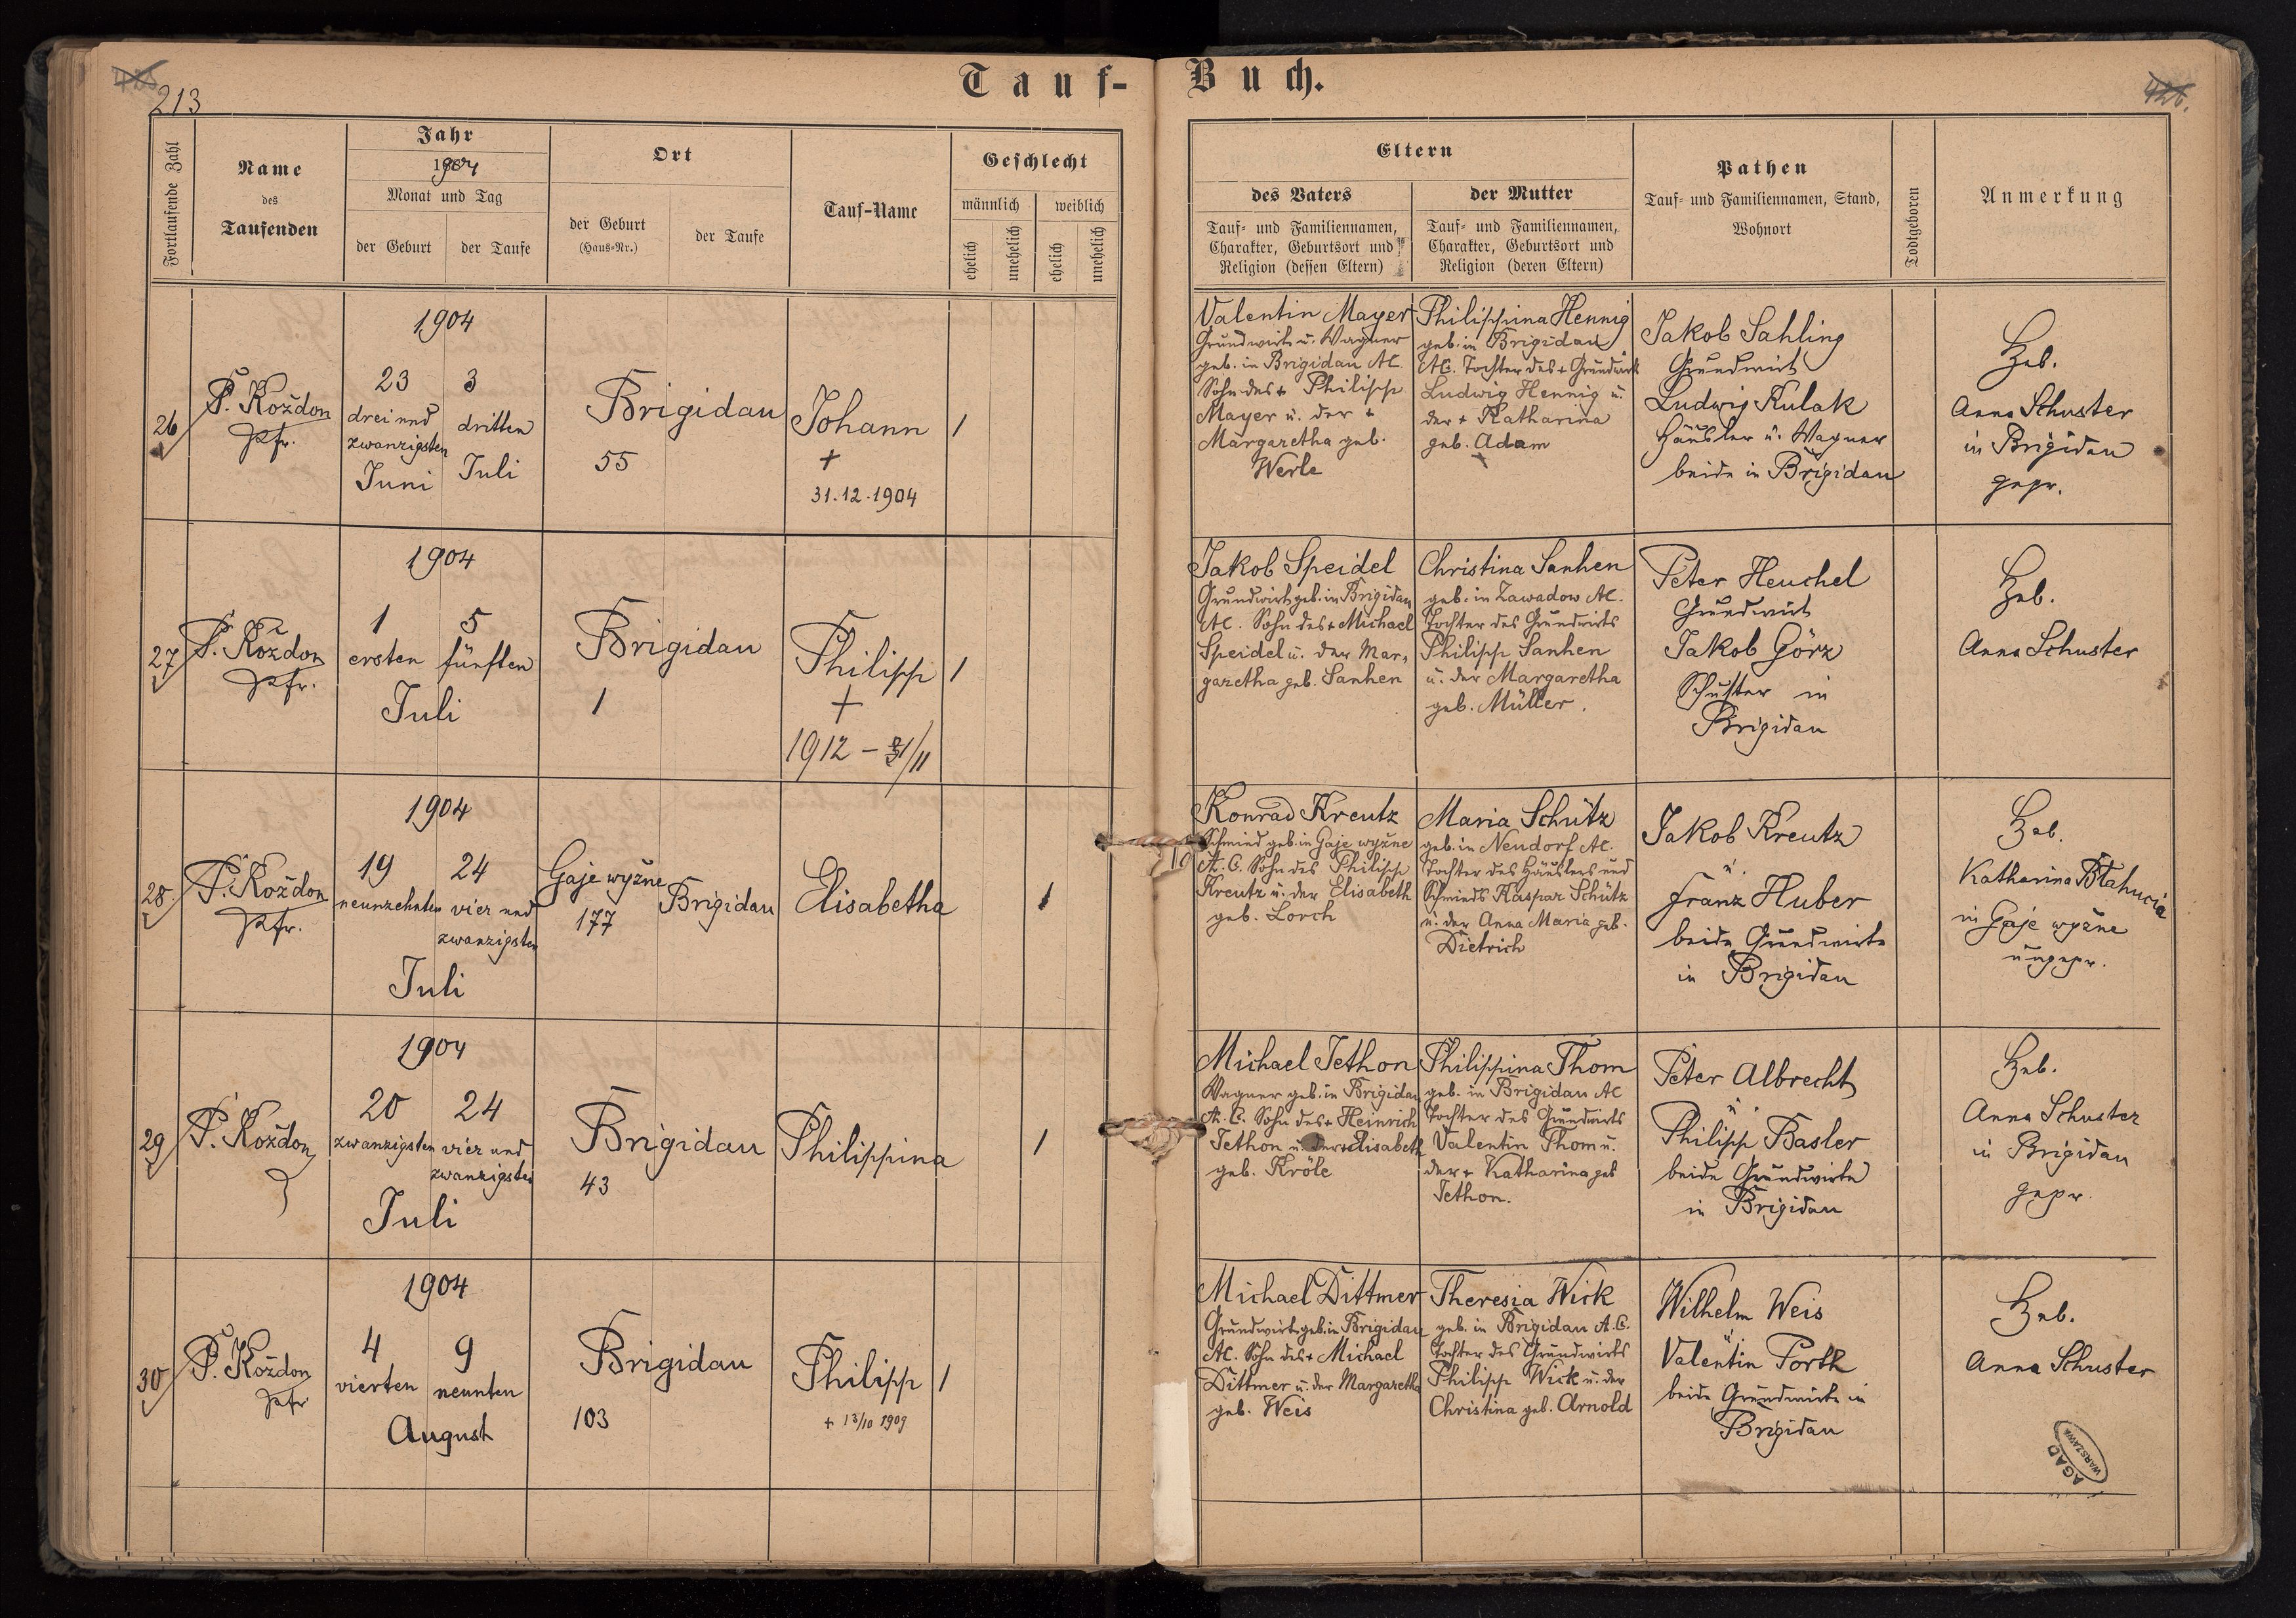 213
Tauf-Buch.
426.
Fortlaufende Zahl
Name
des
Taufenden
Jahr
1904
Monat und Tag
der Geburt
der Taufe
Ort
der Geburt
(Haus-Nr.)
der Taufe
Tauf-Name
Geschlecht
männlich
weiblich
ehelich
unehelich
ehelich
unehelich
Eltern
des Vaters
Tauf- und Familiennamen,
Charakter, Geburtsort und
Religion (dessen Eltern)
der Mutter
Tauf- und Familiennamen,
Charakter, Geburtsort und
Religion (deren Eltern)
Pathen
Tauf- und Familiennamen, Stand,
Wohnort
Todtgeboren
Anmerkung
26
P. Koždon
Pfr.
1904
23
drei und
zwanzigsten
Juni
3
dritten
Juli
Brigidau
55
Johann
+
31.12.1904
1
Valentin Mayer
Grundwirt u. Wagner
geb. in Brigidau AC.
Sohn des + Philipp
Mayer u. der +
Margaretha geb.
Werle
Philippina Hennig
geb. in Brigidau
AC. Tochter des + Grundwirts
Ludwig Hennig u.
der + Katharina
geb. Adam
Jakob Sahling
Grundwirt
Ludwig Kulak
Häusler u. Wagner
beide in Brigidau
Heb.
Anna Schuster
in Brigidau
gepr.
27
P. Koždon
Pfr.
1904
1
ersten
5
fünften
Juli
Brigidau
1
Philipp
+
1912 - /11
1
Jakob Speidel
Grundwirt geb. in Brigidau
AC. Sohn des + Michael
Speidel u. der Mar-
garetha geb. Sanhen
Christina Sanhen
geb. in Zawadow AC.
Tochter des Grundwirts
Philipp Sanhen
u. der Margaretha
geb. Müller.
Peter Heuchel
Grundwirt
Jakob Görz
Schuster in
Brigidau
Heb.
Anna Schuster
28.
P. Koždon
Pfr.
1904
19
neunzehnten
24
vier und
zwanzigsten
Juli
Gaje wyžne
177
Brigidau
Elisabetha
1
Konrad Kreutz
Schmied geb. in Gaje wyžne
A. C. Sohn des Philipp
Kreutz u. der Elisabeth
geb. Lorch
Maria Schütz
geb. in Neudorf AC.
Tochter des Häuslers und
Schmieds Kaspar Schütz
u. der Anna Maria geb.
Dietrich
Jakob Kreutz
u.
Franz Huber
beide Grundwirte
in Brigidau
Heb.
Katharina
in Gaje wyžne
ungepr.
29
P. Koždon
1904
20
zwanzigsten
24
vier und
zwanzigsten
Juli
Brigidau
43
Philippina
1
Michael Jethon
Wagner geb. in Brigidau
A. C. Sohn des + Heinrich
Jethon u. der + Elisabeth
geb. Kröle
Philippina Thom
geb. in Brigidau AC
Tochter des Grundwirts
Valentin Thom u.
der + Katharina geb
Jethon.
Peter Albrecht
u.
Philipp Basler
beide Grundwirte
in Brigidau
Heb.
Anna Schuster
in Brigidau
gepr.
30
P. Koždon
Pfr
1904
4
vierten
9
neunten
August
Brigidau
103
Philipp
+ 13/10 1909
1
Michael Dittmer
Grundwirt geb. in Brigidau
AC. Sohn des + Michael
Dittmer u. der Margaretha
geb. Weis
Theresia Wick
geb. in Brigidau A.C.
Tochter des Grundwirts
Philipp Wick u. der
Christina geb. Arnold
Wilhelm Weis
u.
Valentin Porth
beide Grundwirte in
Brigidau
Heb.
Anna Schuster
AGAD
WARSZAWA